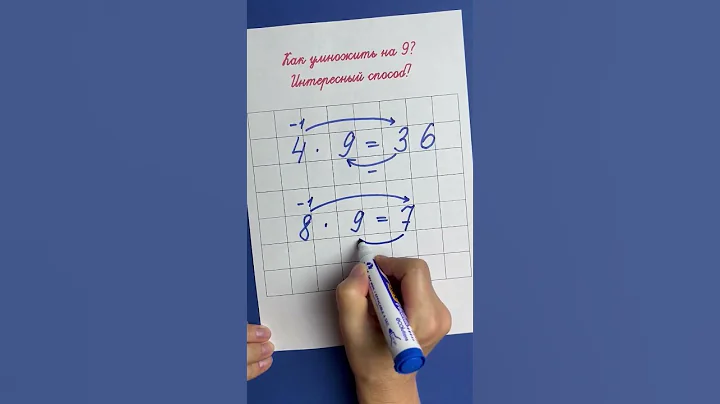 Как умножить на 9?
Интересный способ!
-1
4 · 9 = 36
-
-1
8 · 9 = 7